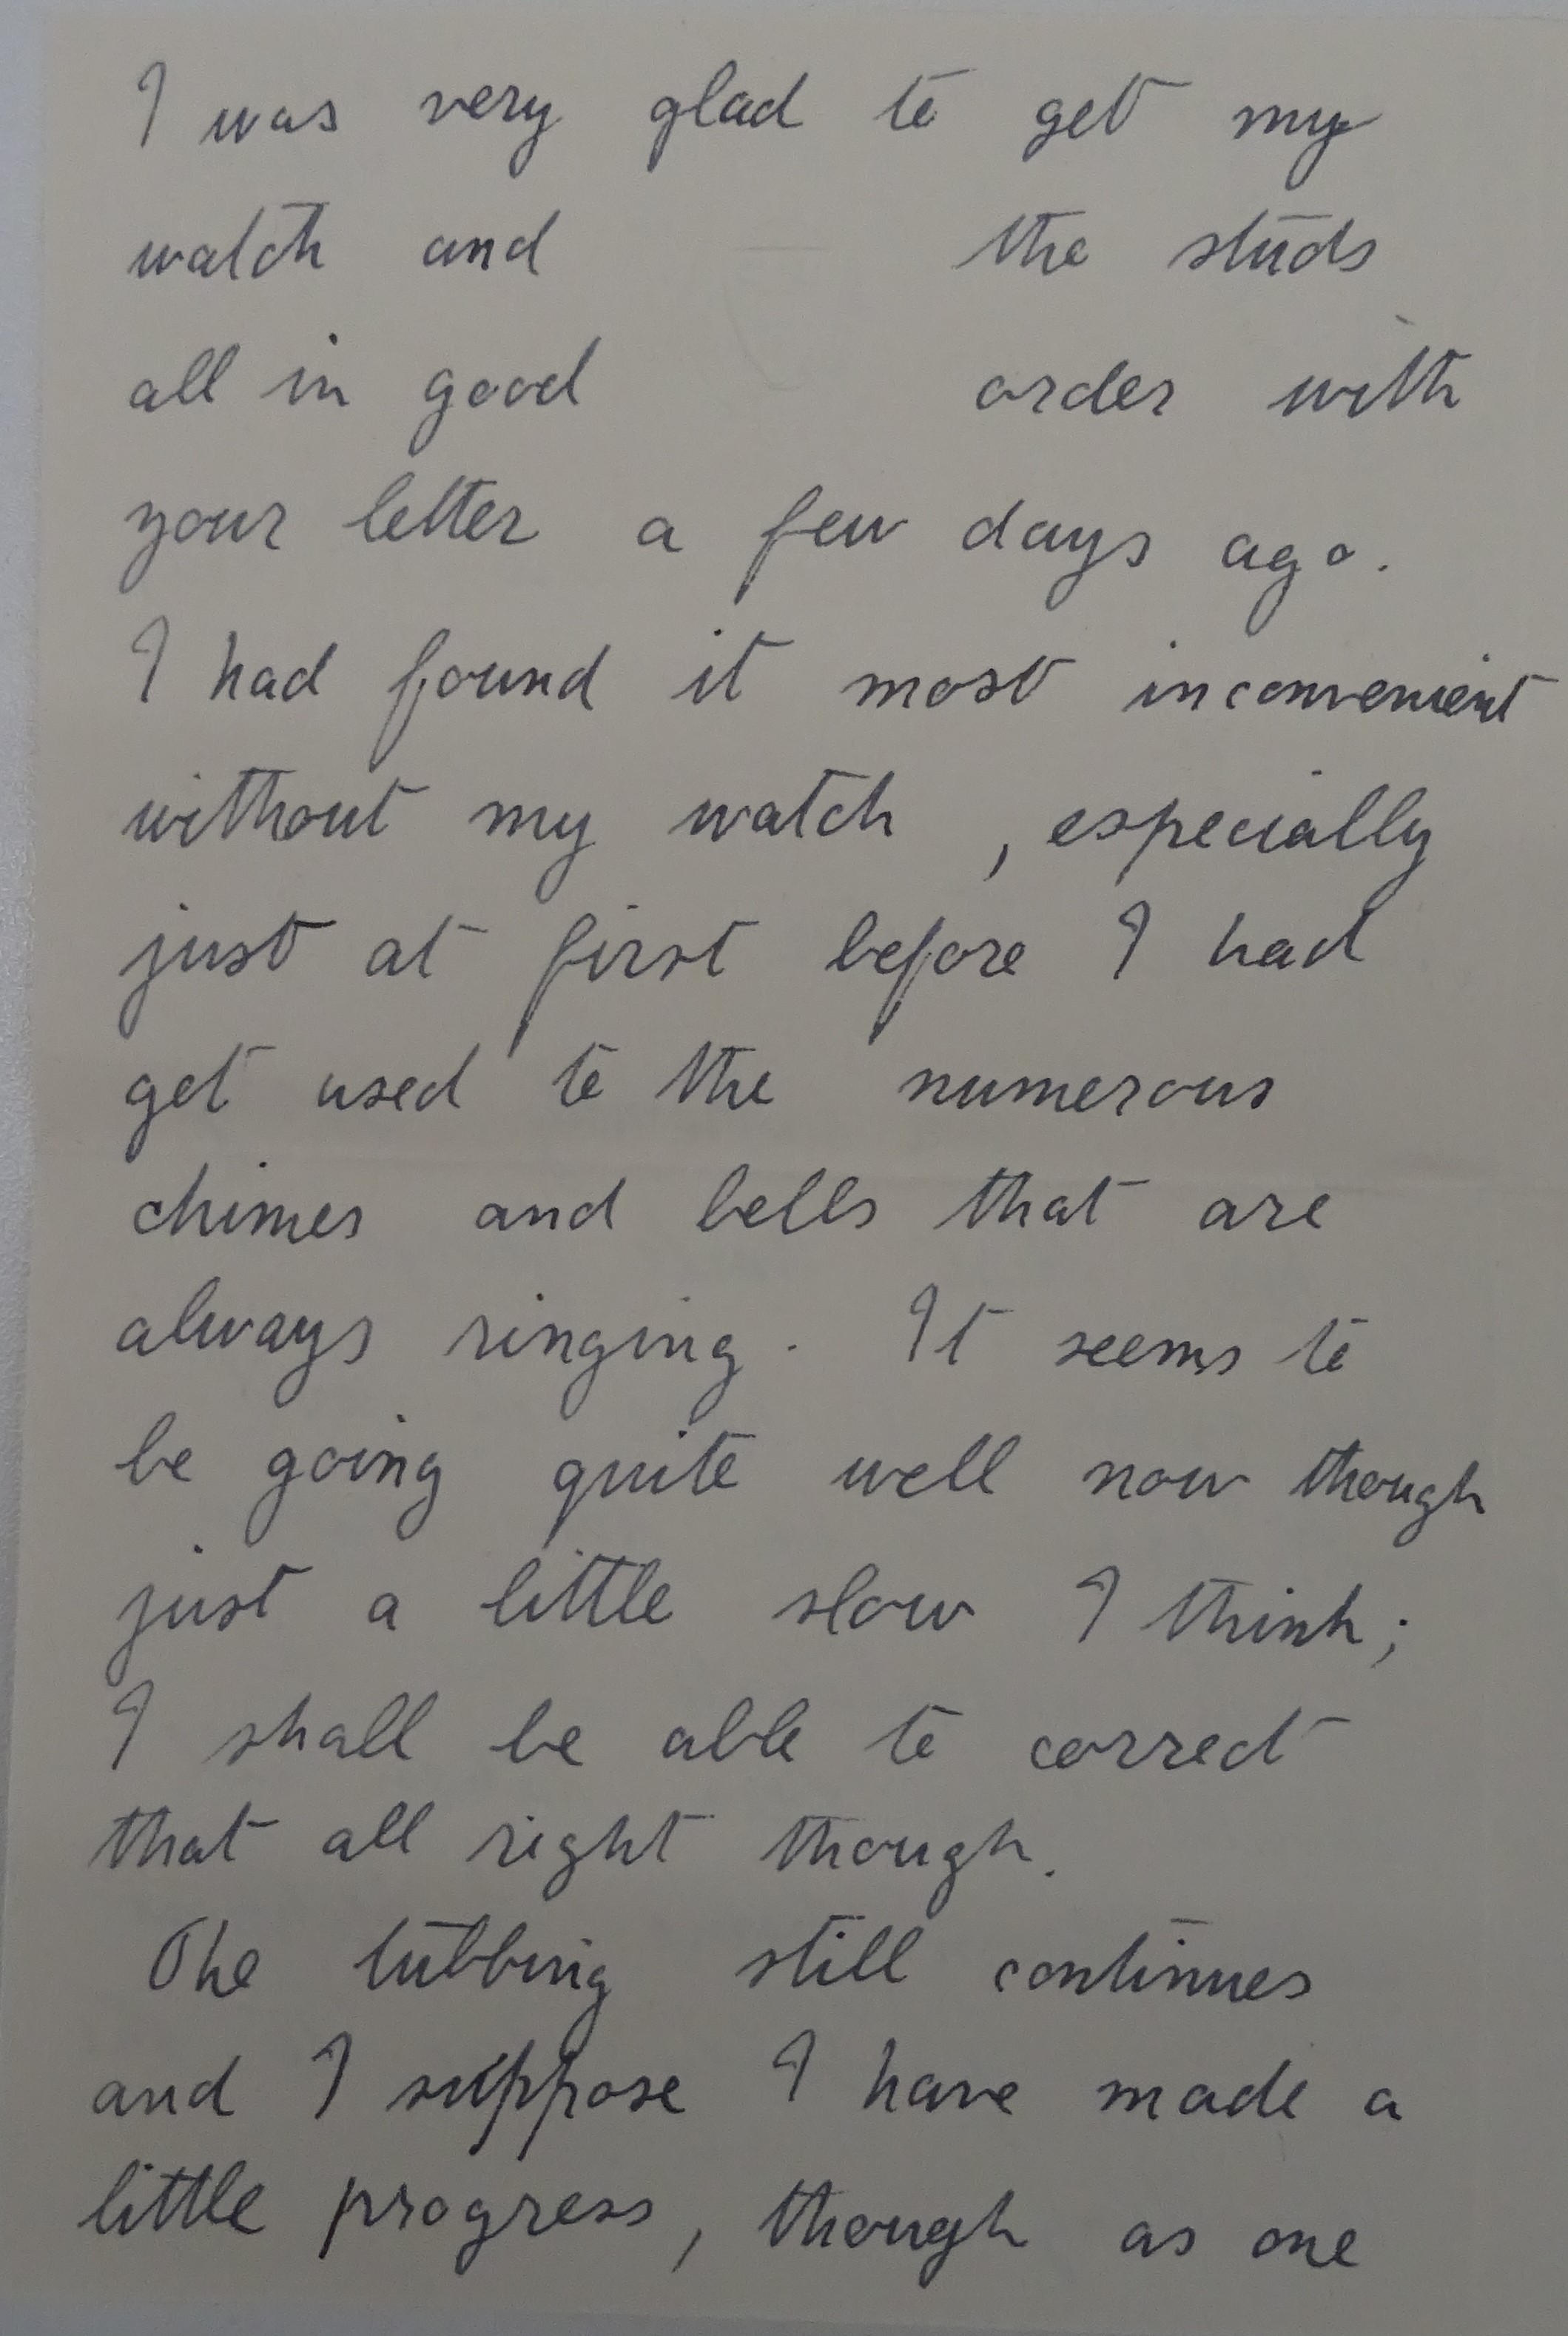 I was very glad to get my
watch and the studs
all in good order with
your letter a few days ago.
I had found it most inconvenient
without my watch, especially
just at first before I had
get used to the numerous
chimes and bells that are
always ringing. It seems to
be going quite well now though
just a little slow I think;
I shall be able to correct
that all right though.
The tubbing still continues
and I suppose I have made a
little progress, though as one